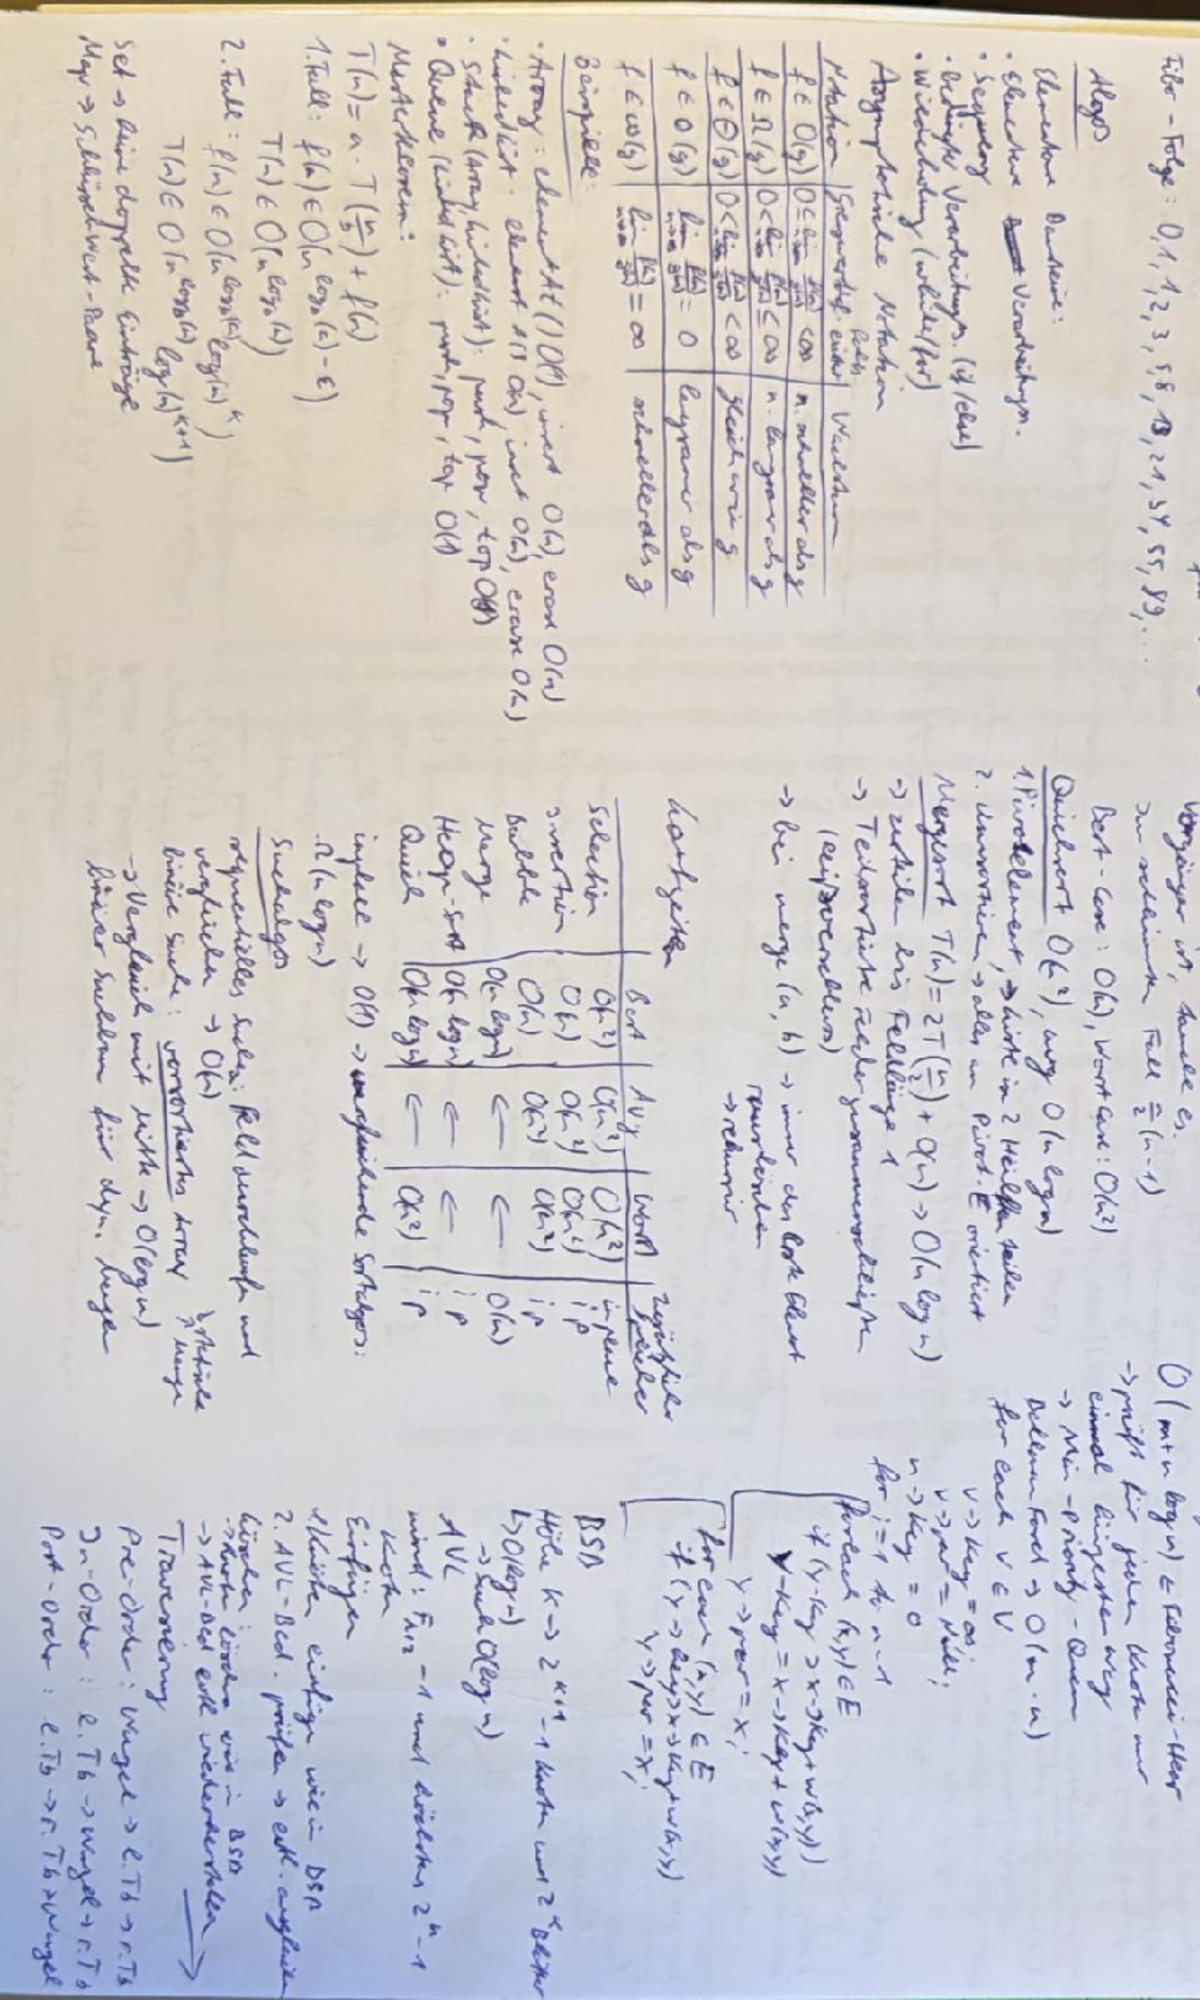 Fibo-Folge: 0,1,1,2,3,5,8,13,21,34,55,89,...
Algos
Elementare Bausteine:
• Elementare Verarbeitungen.
• Sequenz
• bedingte Verarbeitungs. (if/else)
• Wiederholung (while/for)
Asymptotische Notation
Notation | Grenzwertdef. | Wachstum
f ∈ O(g) | 0 ≤ lim n→∞ f(n)/g(n) < ∞ | n. schneller als g
f ∈ Ω(g) | 0 < lim n→∞ f(n)/g(n) ≤ ∞ | n. langsamer als g
f ∈ Θ(g) | 0 < lim n→∞ f(n)/g(n) < ∞ | gleich wie g
f ∈ o(g) | lim n→∞ f(n)/g(n) = 0 | langsamer als g
f ∈ ω(g) | lim n→∞ f(n)/g(n) = ∞ | schneller als g
Beispiele:
• Array: elementAt() O(1), insert O(n), erase O(n)
• Linked List: elementAt() O(n), insert O(n), erase O(n)
• Stack (Array, linked list): push, pop, top O(1)
• Queue (linked list): push, pop, top O(1)
Mastertheorem:
T(n) = a · T(n/b) + f(n)
1. Fall: f(n) ∈ O(n^log_b(a) - ε)
T(n) ∈ Θ(n^log_b(a))
2. Fall: f(n) ∈ Θ(n^log_b(a) log(n)^k)
T(n) ∈ Θ(n^log_b(a) log(n)^k+1)
Set → keine doppelte Einträge
Map → Schlüssel-Wert-Paare
Vorgänger ist, tausche es.
Im schlimmsten Fall n/2 (n-1)
Best-Case: O(n), Worst Case: O(n²)
Quicksort O(n²), avg O(n log n)
1. Pivotelement, → Liste in 2 Hälften teilen
2. Umsortieren → alles an Pivot-E orientiert
Mergesort T(n) = 2T(n/2) + O(n) → O(n log n)
→ zerteilen bis Feldlänge 1
→ Teilsortierte Felder zusammenschließen
(Reißverschluss)
→ bei merge (a, b) → immer das erste Element
→ rekursiv
Laufzeiten
| Best | Avg | Worst | zusätzlicher Speicher
Selection | O(n²) | O(n²) | O(n²) | in place
Insertion | O(n) | O(n²) | O(n²) | i.p
Bubble | O(n) | O(n²) | O(n²) | i.p
Merge | O(n log n) | ← | ← | O(n)
Heap-Sort | O(n log n) | ← | ← | i.p
Quick | O(n log n) | ← | O(n²) | i.p
inplace → O(1) → vergleichende Sortalgos:
Ω(n log n)
Suchalgos
sequentielles Suchen: Feld durchlaufen und
vergleichen → O(n)
binäre Suche: vorsortiertes Array
↳ statische Menge
→ Vergleich mit Mitte → O(log n)
binärer Suchbaum für dyn. Mengen
O(m+n log n) ∈ Fibonacci-Heap
→ prüft für jeden Knoten nur
einmal kürzesten Weg
→ Min-Priority-Queue
Bellman Ford → O(m·n)
for each v ∈ V
v→key = ∞
v→par = Null;
u→key = 0
for i = 1 to n-1
for each (x,y) ∈ E
if (y→key > x→key + w(x,y))
y→key = x→key + w(x,y)
y→par = x;
for each (x,y) ∈ E
if (y→key > x→key + w(x,y))
y→par = x;
BSB
Höhe k → 2^k+1 - 1 Knoten und 2^k Blätter
↳ O(log n)
→ Suche O(log n)
AVL
mind: F_h+2 - 1 und höchstens 2^h - 1
Knoten
Einfügen
1. Knoten einfügen wie in BSB
2. AVL-Bed. prüfen → evtl. angleichen
Löschen
→ Knoten löschen wie in BSB
→ AVL-Bed evtl wiederherstellen →
Traversierung
Pre-Order: Wurzel → l.Tb → r.Tb
In-Order: l.Tb → Wurzel → r.Tb
Post-Order: l.Tb → r.Tb → Wurzel